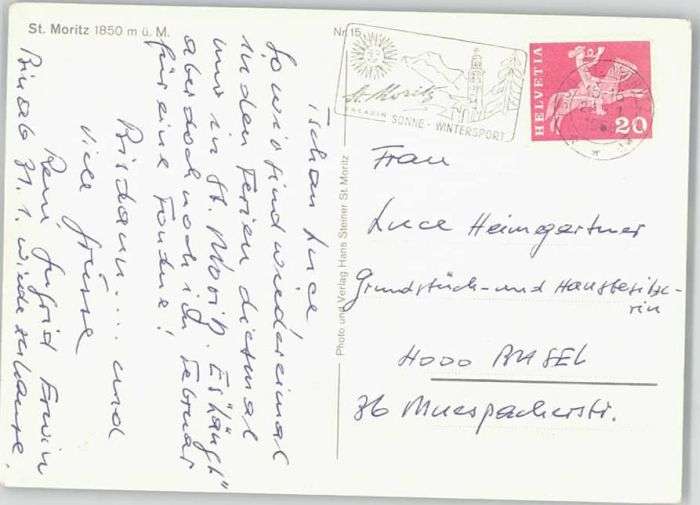 St. Moritz 1850 m ü. M.
Nr. 15
St. Moritz
ENGADIN SONNE - WINTERSPORT
HELVETIA
20
Photo und Verlag Hans Steiner St. Moritz
Tschau Luce!
So wir sind wieder einmal
in den Ferien diesmal
nur in St. Moritz. Es "längt"
aber doch noch im Februar
für eine Fondue!
Bis dann.... und
viele Grüsse
René Ingrid Erwin
Bin ab 31. 1. wieder zuhause.
Frau
Luce Heimgartner
Grundstück- und Hausbesitze-
rin
4000 BASEL
36 Muespacherstr.